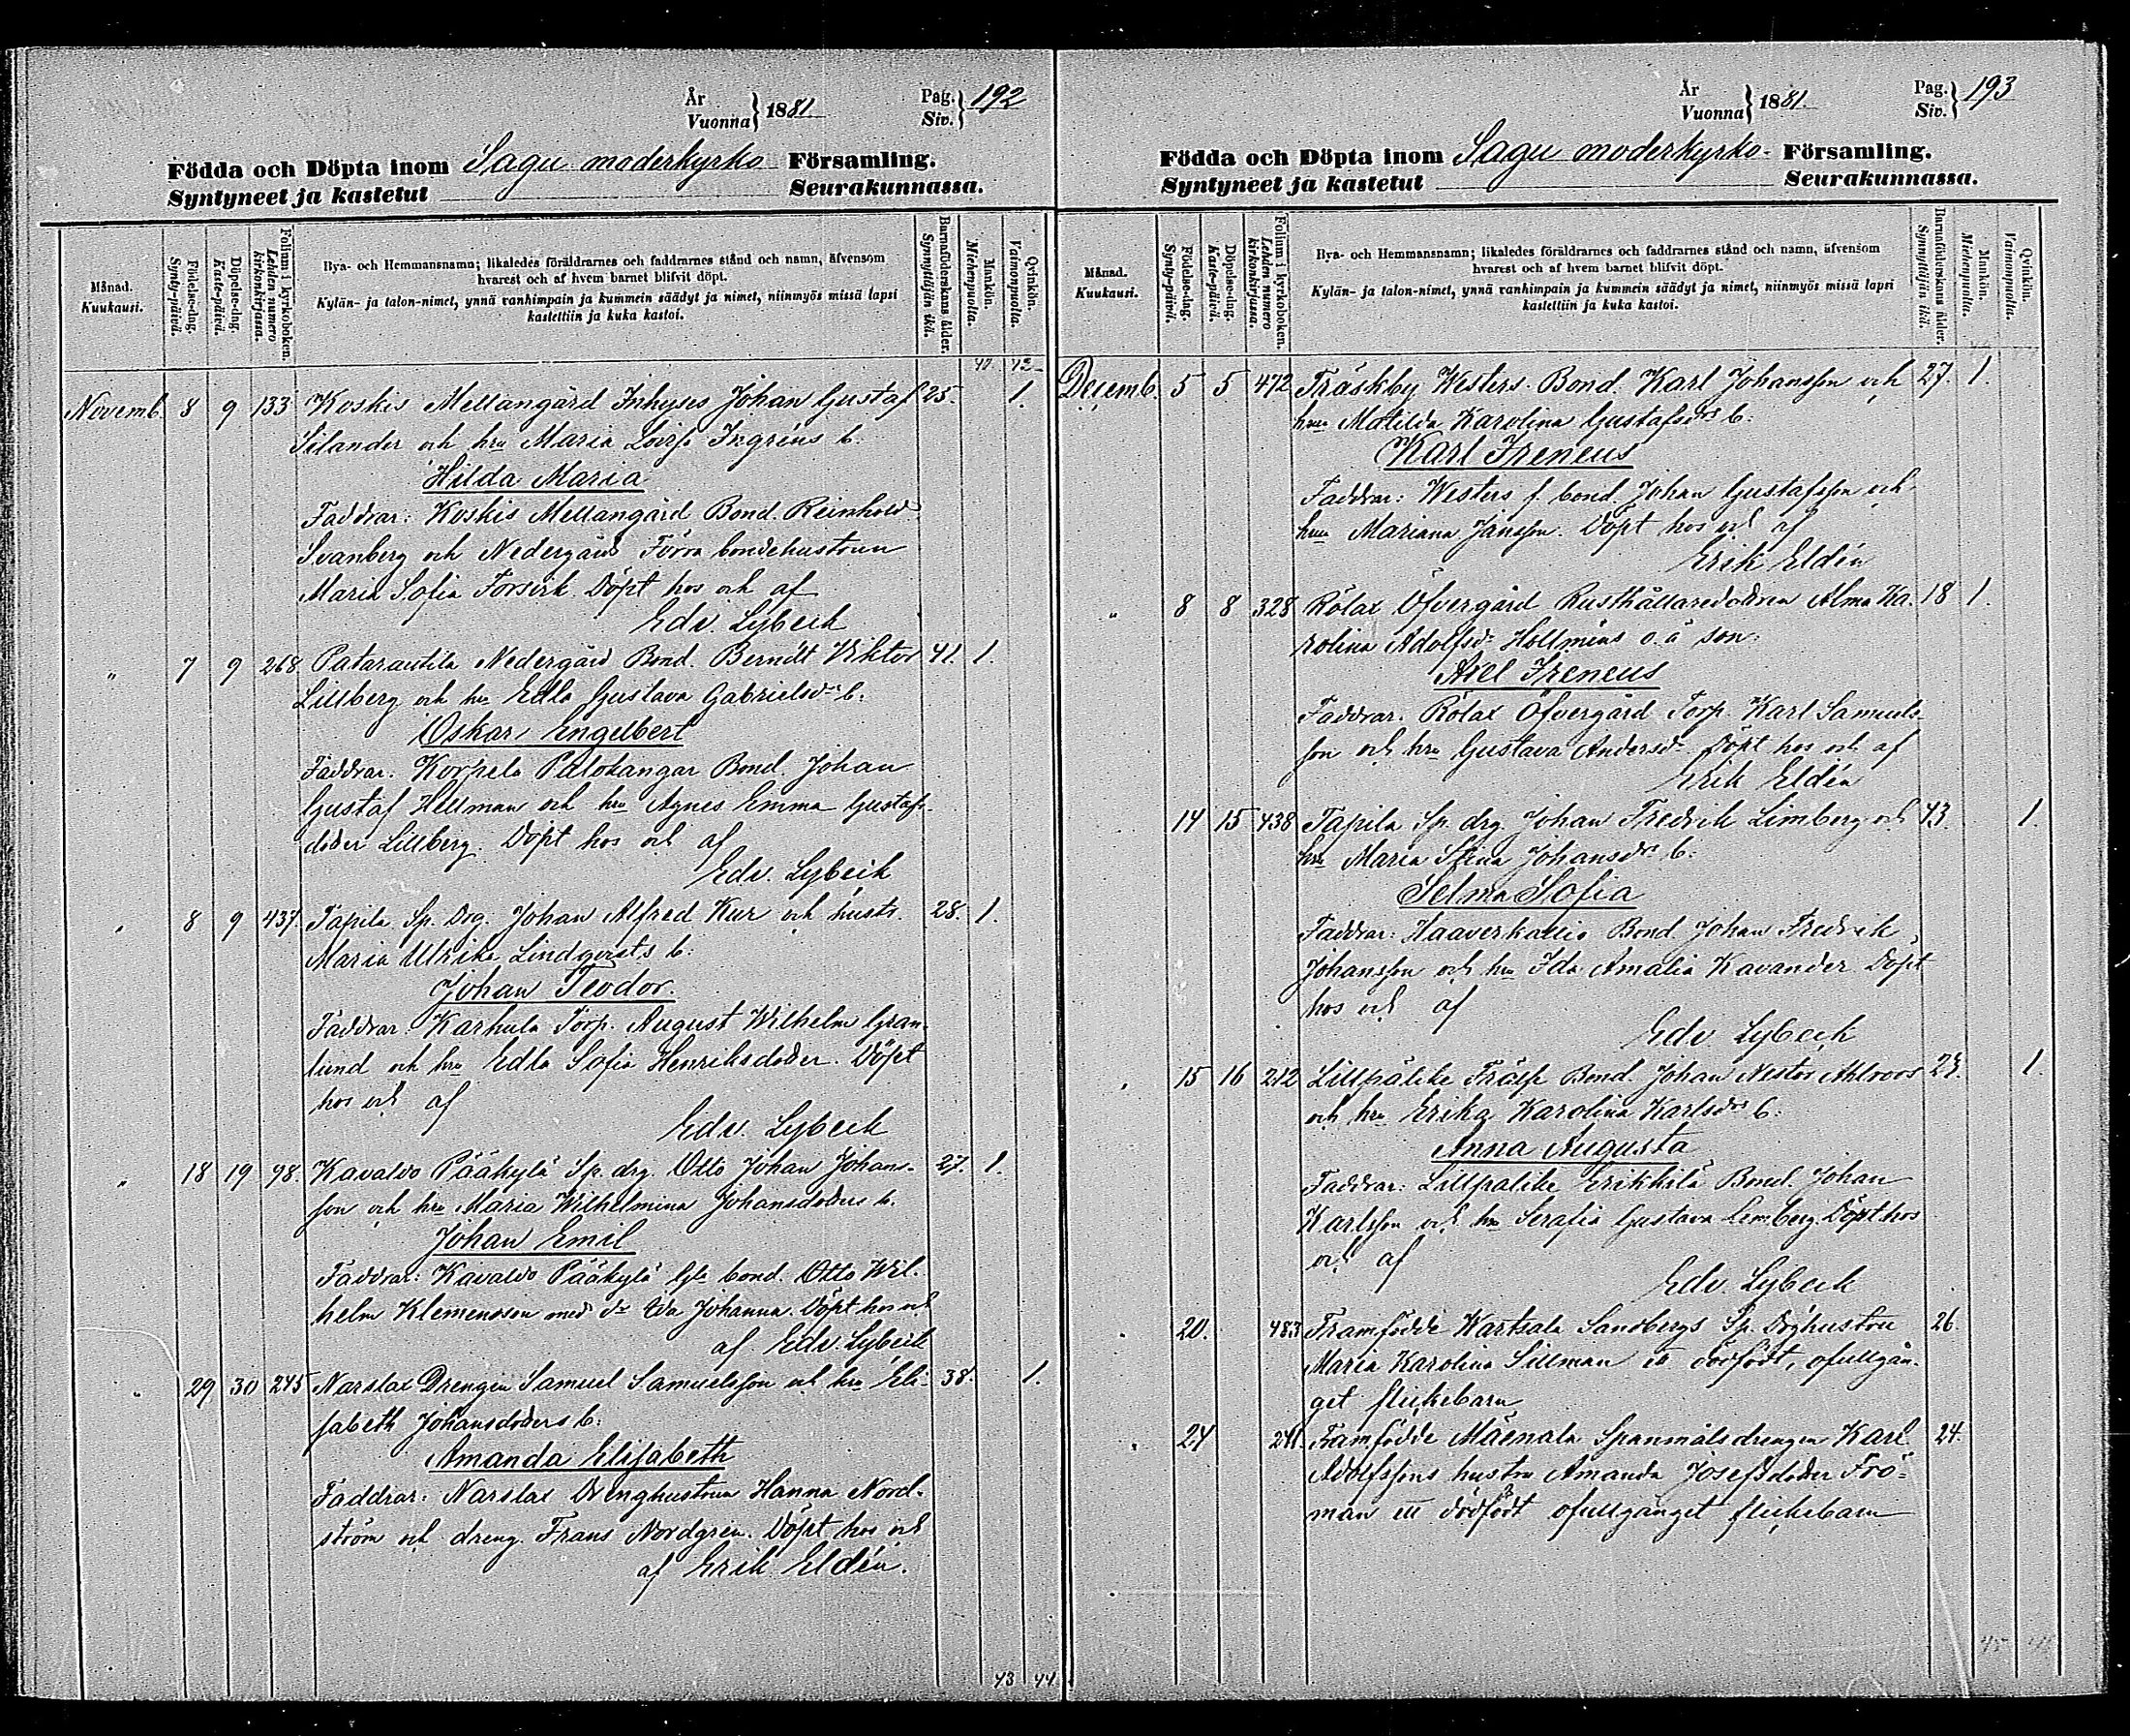 År
Vuonna } 1881
Pag.
Siv. } 192
Födda och Döpta inom Sagu moderkyrko Församling.
Syntyneet ja kastetut Seurakunnassa.
Månad. Kuukausi.
Födelse-dag. Synty-päivä.
Döpelse-dag. Kaste-päivä.
Folium i kyrkoboken. Lehden numero kirkonkirjassa.
Bya- och Hemmansnamn; likaledes föräldrarnes och faddrarnes stånd och namn, äfvensom
hvarest och af hvem barnet blifvit döpt.
Kylän- ja talon-nimet, ynnä vanhimpain ja kummein säädyt ja nimet, niinmyös missä lapsi
kastettiin ja kuka kastoi.
Barnaföderskans ålder. Synnyttäjän ikä.
Mankön. Miehenpuolta.
Qvinkön. Vaimonpuolta.
Novemb. 8 9 133 Koskis Mellangård Inhyses Johan Gustaf 25. 1.
Silander och hru Maria Lovisa Ingréns b.
Hilda Maria
Faddrar: Koskis Mellangård Bond. Reinhold
Svanberg och Nedergård Förra bondehustrun
Maria Sofia Forsvik Döpt hos och af
Edv. Lybeck
" 7 9 268 Patarautila Nedergård Bond. Berndt Viktor 41. 1.
Lillberg och hru Edla Gustava Gabrielsdrs b.
Oskar Engelbert
Faddrar: Korpela Palokangar Bond. Johan
Gustaf Hellman och hru Agnes Emma Gustafs-
doder Lillberg. Döpt hos och af
Edv. Lybeck
" 8 9 437. Tapila Sp. Drg. Johan Alfred Kur och hustr. 28. 1.
Maria Ulrika Lindqvists b:
Johan Teodor.
Faddrar. Karhula Torp. August Wilhelm Gran-
lund och hru Edla Sofia Henriksdoder. Döpt
hos och af
Edv. Lybeck
" 18 19 98. Kavaldo Pääkylä Sp. drg. Otto Johan Johans- 27. 1.
son och hru Maria Wilhelmina Johansdoders b.
Johan Emil
Faddrar: Kavaldo Pääkylä bond. Otto Wil-
helm Klemensson med dr Ida Johanna. Döpt hos och
af Edv. Lybeck
" 29 30 245 Narslax Drengen Samuel Samuelsson och hru Eli- 38. 1.
sabeth Johansdoders b:
Amanda Elisabeth
Faddrar: Narslax Drenghustrun Hanna Nord-
ström och dreng. Frans Nordgren. Döpt hos och
af Erik Eldén.
43 44
År
Vuonna } 1881
Pag.
Siv. } 193
Födda och Döpta inom Sagu moderkyrko- Församling.
Syntyneet ja kastetut Seurakunnassa.
Månad. Kuukausi.
Födelse-dag. Synty-päivä.
Döpelse-dag. Kaste-päivä.
Folium i kyrkoboken. Lehden numero kirkonkirjassa.
Bya- och Hemmansnamn; likaledes föräldrarnes och faddrarnes stånd och namn, äfvensom
hvarest och af hvem barnet blifvit döpt.
Kylän- ja talon-nimet, ynnä vanhimpain ja kummein säädyt ja nimet, niinmyös missä lapsi
kastettiin ja kuka kastoi.
Barnaföderskans ålder. Synnyttäjän ikä.
Mankön. Miehenpuolta.
Qvinkön. Vaimonpuolta.
Decemb. 5 5 472 Träskby Westers. Bond. Karl Johansson och 27. 1.
hru Matilda Karolina Gustafsdrs b:
Karl Ireneus
Faddrar: Westers f. bond. Johan Gustafsson och
hru Mariana Jansson. Döpt hos och af
Erik Eldén
" 8 8 328 Rölax Öfvergård Rusthållaredottren Alma Ka- 18 1.
rolina Adolfsdr Hollméns o.ä son:
Axel Ireneus
Faddrar. Rölax Öfvergård Torp. Karl Samuels-
son och hru Gustava Andersdr Döpt hos och af
Erik Eldén
14 15 438 Tapila Sp. drg. Johan Fredrik Limberg och 43. 1.
hru Maria Stina Johansdrs b:
Selma Sofia
Faddrar: Haaverkallio Bond Johan Fredrik
Johansson och hru Ida Amalia Kavander Döpt
hos och af
Edv Lybeck
" 15 16 212 Lillpälike Frälse Bond. Johan Nestor Ahlroos 1.
och hru Erika Karolina Karlsdrs b:
Anna Augusta
Faddrar: Lillpälike Erikkilä Bond. Johan
Karlsson och hru Serafia Gustava Limberg. Döpt hos
och af
Edv. Lybeck
" 20. 483 Framfödde Kartsala Sandbergs Sp. Drghustru 26.
Maria Karolina Sillman ett dödfödt, ofullgån-
get flickebarn
" 24 241. Framfödde Mäenala Spanmålsdrengen Karl 24.
Adolfssons hustru Amanda Josefsdoder Frö-
man ett dödfödt ofullgånget flickebarn